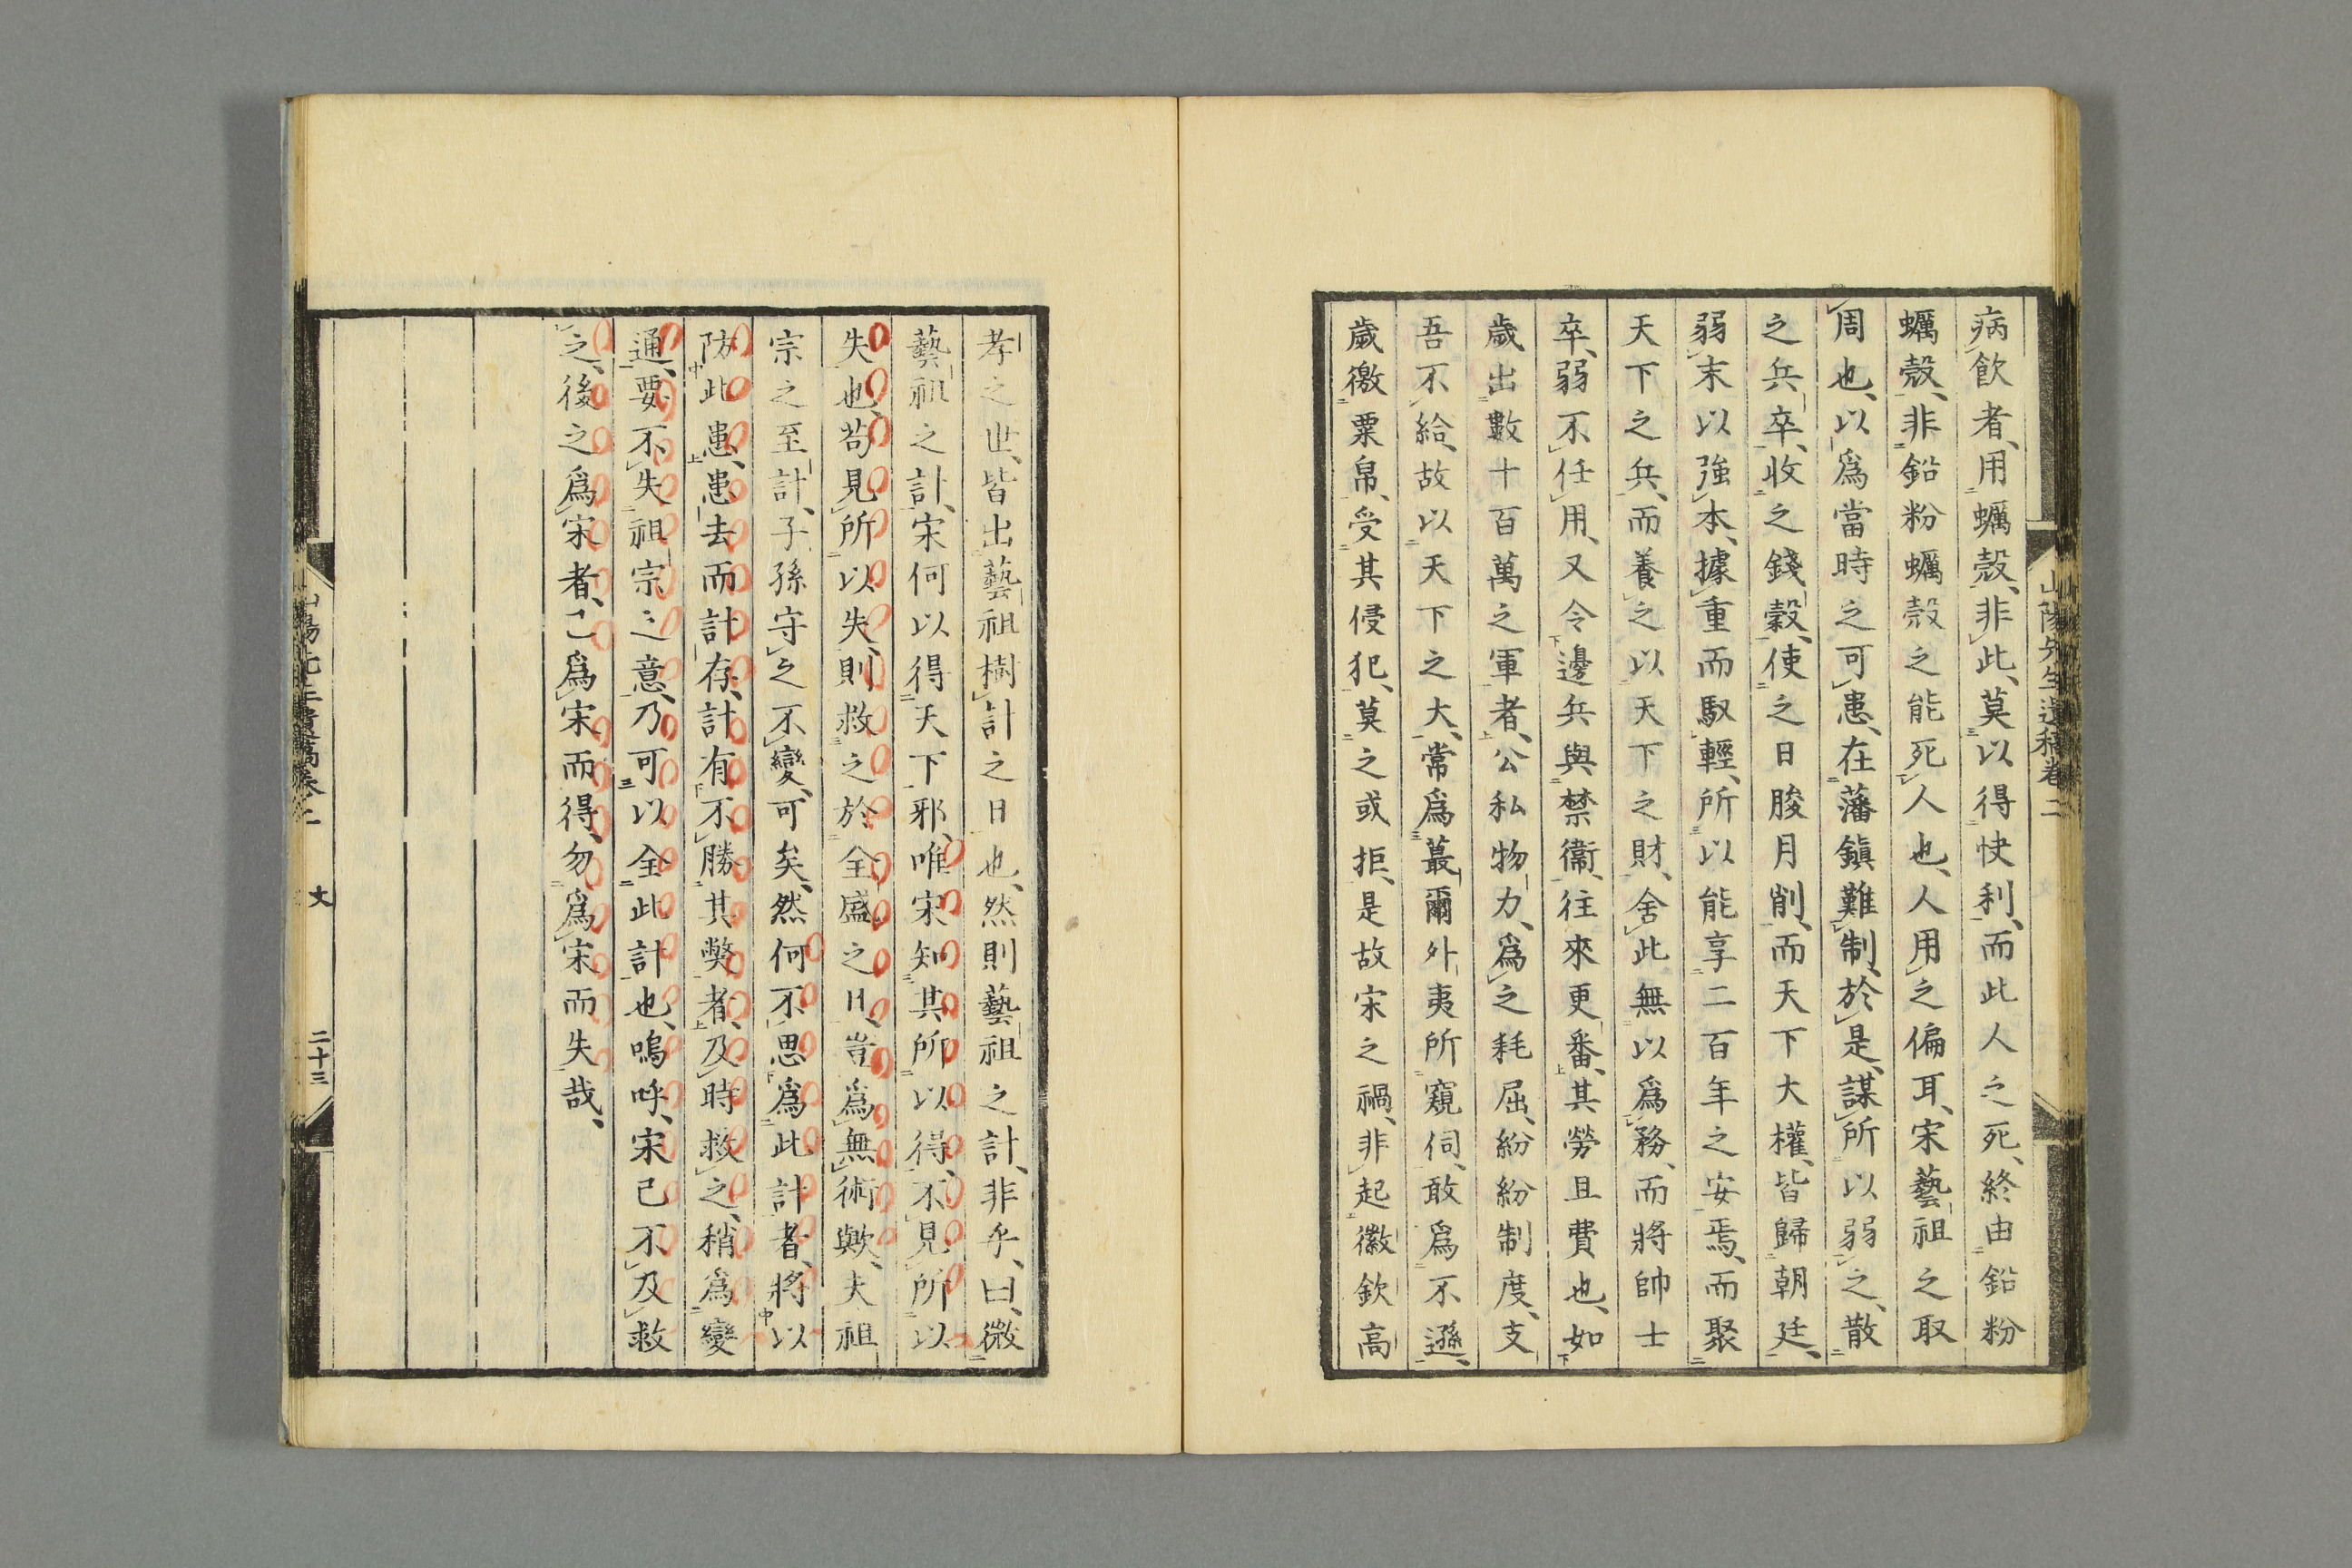 山陽先生遺稿卷二
病飲者、用蠣殼、非此、莫以得快利、而此人之死、終由鉛粉
蠣殼、非鉛粉蠣殼之能死人也、人用之偏耳、宋藝祖之取
周也、以爲當時之可患、在藩鎮難制、於是、謀所以弱之、散
之兵卒、收之錢穀、使之日朘月削、而天下大權、皆歸朝廷、
弱末以強本、據重而馭輕、所以能享二百年之安焉、而聚
天下之兵、而養之以天下之財、舍此無以爲務、而將帥士
卒、弱不任用、又令邊兵與禁衞、往來更番、其勞且費也、如
歲出數十百萬之軍者、公私物力、爲之耗屈、紛紛制度、支
吾不給、故以天下之大、常爲蕞爾外夷所窺伺、敢爲不遜、
歲徼粟帛、受其侵犯、莫之或拒、是故宋之禍、非起徽欽高
孝之世、皆出藝祖樹計之日也、然則藝祖之計、非乎、曰、微
藝祖之計、宋何以得天下邪、唯宋知其所以得、不見所以
失也、苟見所以失、則救之於全盛之日、豈爲無術歟、夫祖
宗之至計、子孫守之不變、可矣、然何不思爲此計者、將以
防此患、患去而計存、計有不勝其弊者、及時救之、稍爲變
通、要不失祖宗之意、乃可以全此計也、嗚呼、宋已不及救
之、後之爲宋者、已爲宋而得、勿爲宋而失哉、
山陽先生遺稿卷二 文 二十三